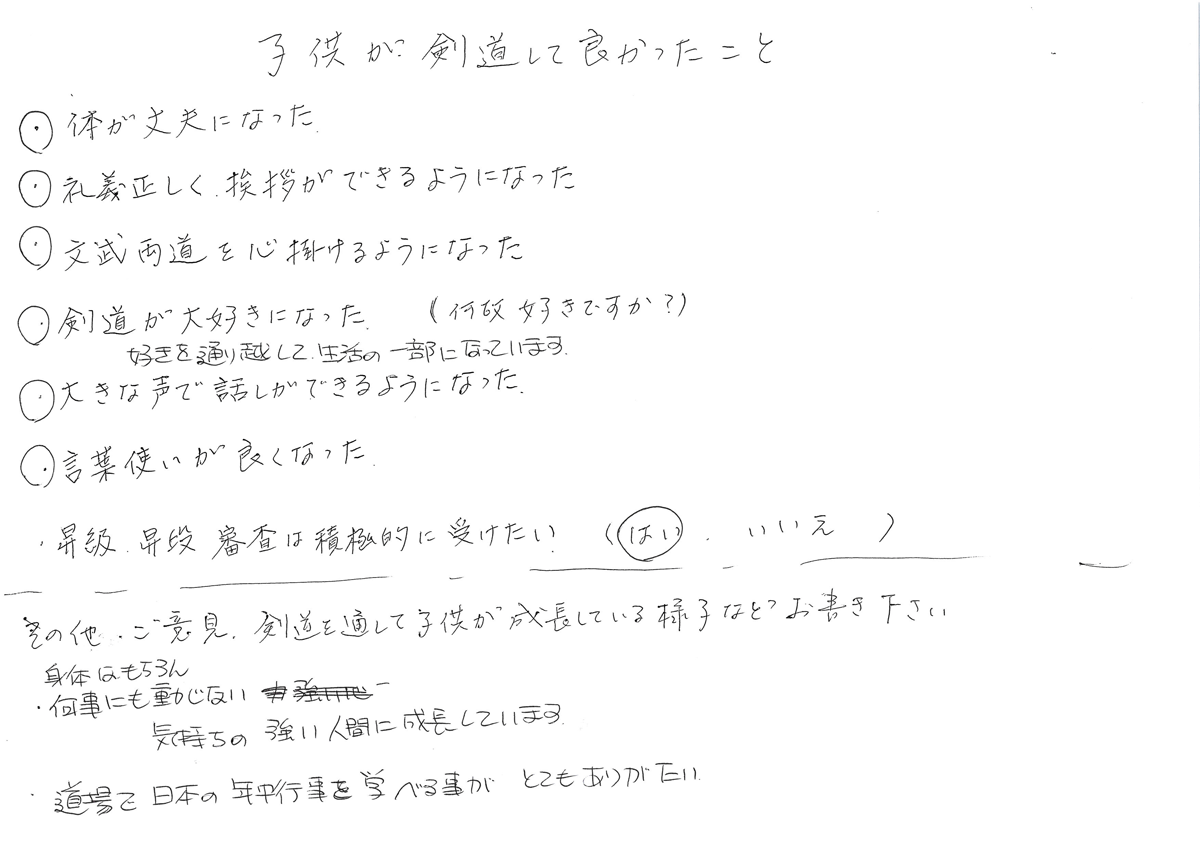 子供が剣道して良かったこと
・体が丈夫になった.
・礼義正しく.挨拶ができるようになった
・文武両道を心掛けるようになった
・剣道が大好きになった. (何故好きですか?)
好きを通り越して.生活の一部になっています.
・大きな声で話しができるようになった.
・言葉使いが良くなった.
・昇級.昇段審査は積極的に受けたい. (はい . いいえ )
その他.ご意見.剣道を通して子供が成長している様子などお書き下さい
身体はもちろん
・何事にも動じない
気持ちの強い人間に成長しています.
・道場で日本の年中行事を学べる事がとてもありがたい.